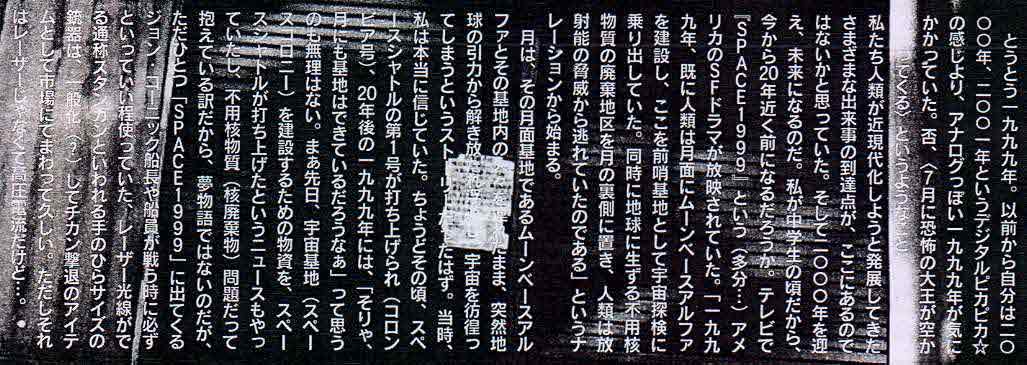 とうとう一九九九年。以前から自分は二〇
〇〇年、二〇〇一年というデジタルピカピカ☆
の感じより、アナログっぽい一九九九年が気に
かかっていた。否、〈7月に恐怖の大王が空か
ってくる〉というような
私たち人類が近現代化しようと発展してきた
さまざまな出来事の到達点が、ここにあるので
はないかと思っていた。そして二〇〇〇年を迎
え、未来になるのだ。私が中学生の頃だから、
今から20年近く前になるだろうか。テレビで
『SPACE1999』という（多分…）アメ
リカのSFドラマが放映されていた。「一九九
九年、既に人類は月面にムーンベースアルファ
を建設し、ここを前哨基地として宇宙探検に
乗り出していた。同時に地球に生ずる不用核
物質の廃棄地区を月の裏側に置き、人類は放
射能の脅威から逃れていたのである」というナ
レーションから始まる。
月は、その月面基地であるムーンベースアル
ファとその基地内の まま、突然地
球の引力から解き放 宇宙を彷徨っ
てしまうというスト はず。当時、
私は本当に信じていた。ちょうどその頃、スペ
ースシャトルの第1号が打ち上げられ（コロン
ビア号）、20年後の一九九九年には、「そりゃ、
月にも基地はできているだろうなぁ」って思う
のも無理はない。まぁ先日、宇宙基地（スペー
スコロニー）を建設するための物資を、スペー
スシャトルが打ち上げたというニュースもやっ
ていたし、不用核物質（核廃棄物）問題だって
抱えている訳だから、夢物語ではないのだが、
ただひとつ「SPACE1999」に出てくる
ション・コーニック船長や船員が戦う時に必ず
といっていい程使っていた、レーザー光線がで
る通称スタンガンといわれる手のひらサイズの
銃器は、一般化（？）してチカン撃退のアイテ
ムとして市場にでまわって久しい。ただしそれ
はレーザーじゃなくて高圧電流だけど…。●